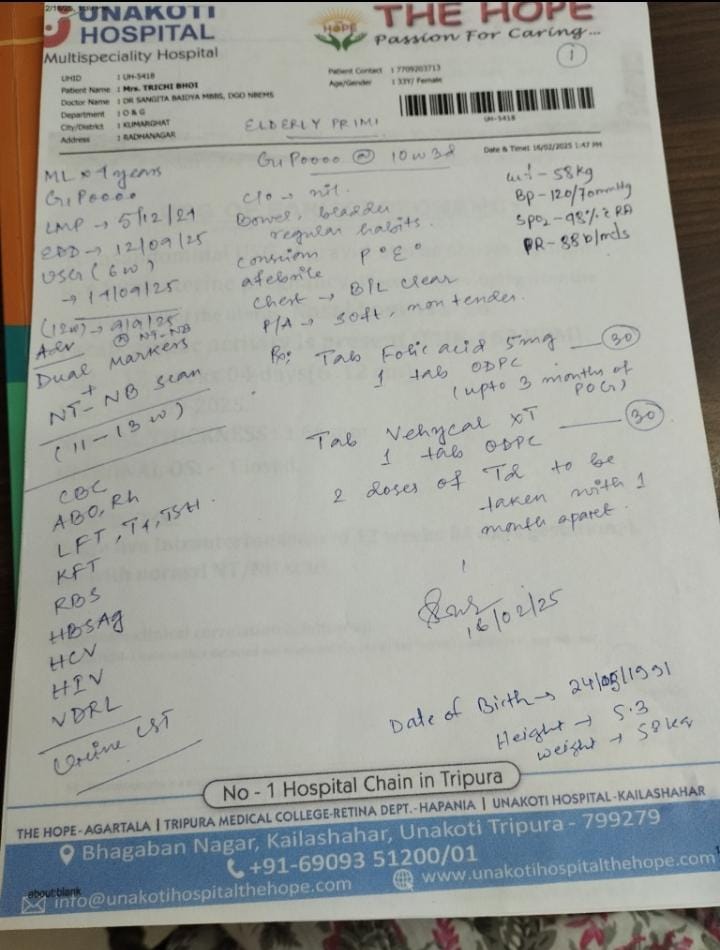 UNAKOTI
HOSPITAL
Multispeciality Hospital
HOPE
THE HOPE
Passion For Caring...
1
UHID : UH-5418
Patient Name : Mrs. TRICHI BHOI
Doctor Name : DR SANGITA BAIDYA MBBS, DGO NBEMS
Department : O & G
City/District : KUMARGHAT
Address : RADHANAGAR
Patient Contact : 7709203713
Age/Gender : 33Y/ Female
UH-5418
Date & Time: 16/02/2025 1:47 PM
ELDERLY PRIMI
G1P0000 @ 10w3d
ML x 1 years
G1P0000
LMP → 5/12/24
EDD → 12/09/25
USG (6w)
→ 14/09/25
(12w) → 9/9/25
Adv Ⓝ NT-NB
Dual Markers
+
NT-NB scan
(11-13w)
CBC
ABO, Rh
LFT, T4, TSH.
KFT
RBS
HBSAg
HCV
HIV
VDRL
Urine C/ST
c/o → nil.
Bowel, bladder
regular habits.
conscious P° E°
afebrile
Chest → B/L clear
P/A → soft non tender.
wt - 58kg
BP - 120/70mmHg
SPO2 - 98% c RA
PR - 88b/mts
Rx: Tab Folic acid 5mg — 30
1 tab ODPC
(upto 3 months of
POG)
Tab Vehycal XT — 30
1 tab ODPC
2 doses of Td to be
taken with 1
month aparet.
16/02/25
Date of Birth → 24/05/1991
Height → 5.3
weight → 58kg
No - 1 Hospital Chain in Tripura
THE HOPE - AGARTALA | TRIPURA MEDICAL COLLEGE-RETINA DEPT. - HAPANIA | UNAKOTI HOSPITAL - KAILASHAHAR
Bhagaban Nagar, Kailashahar, Unakoti Tripura - 799279
+91-69093 51200/01
about:blank
info@unakotihospitalthehope.com www.unakotihospitalthehope.com